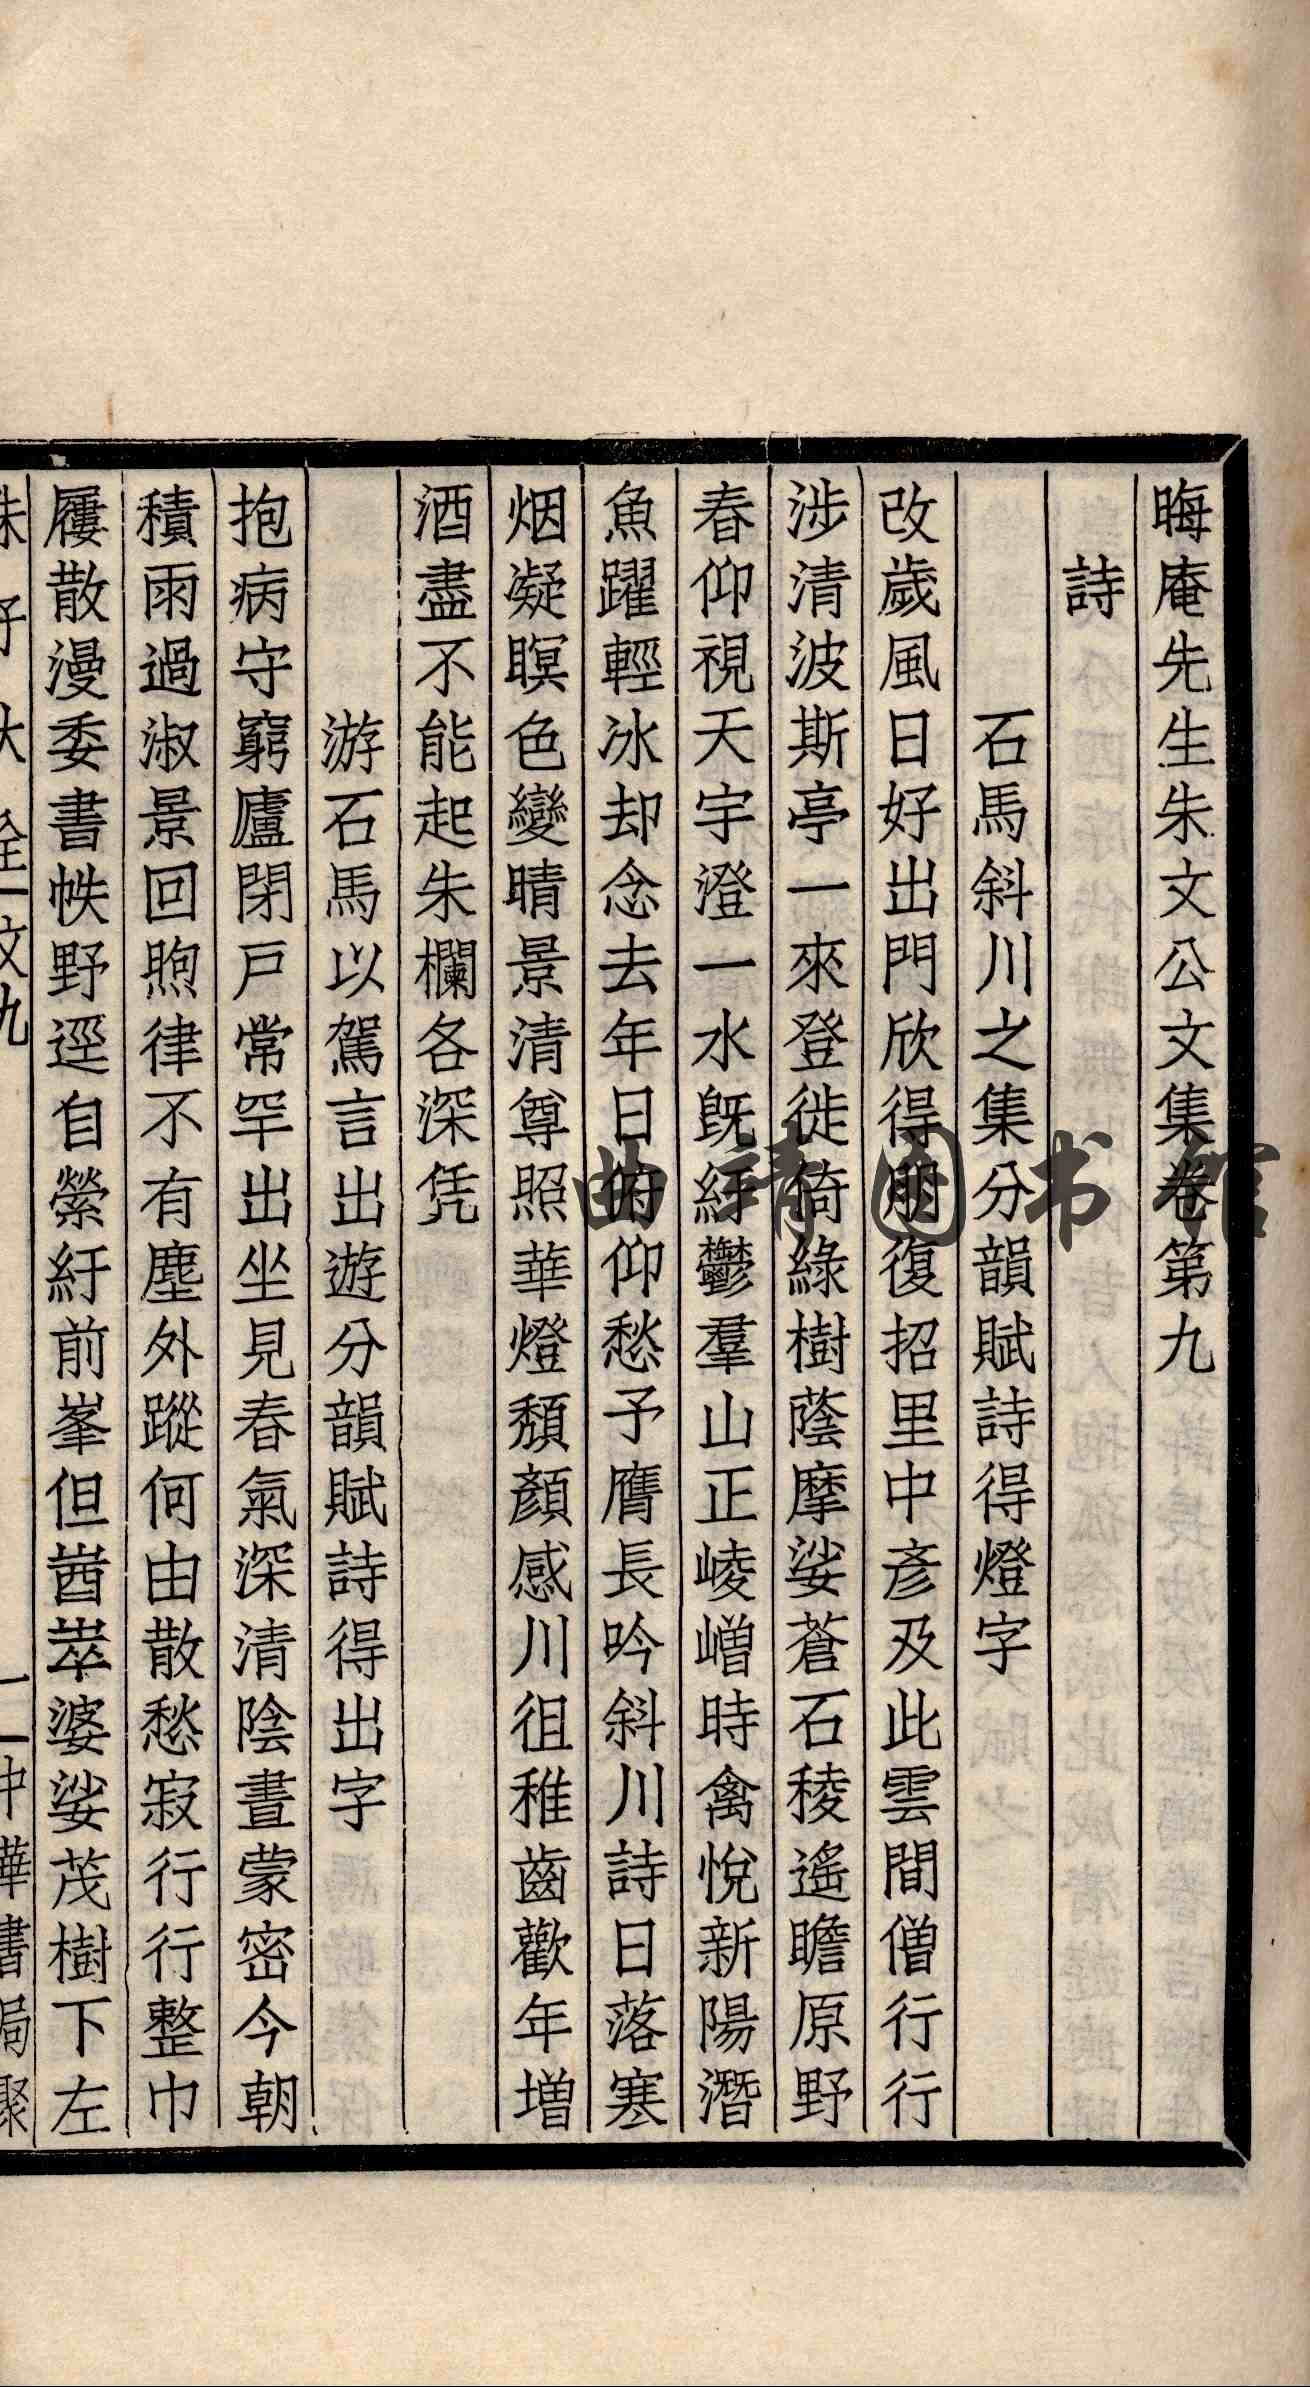 晦庵先生朱文公文集卷第九
詩
石馬斜川之集分韻賦詩得燈字
改歲風日好出門欣得朋復招里中彥及此雲間僧行行
涉清波斯亭一來登徙倚綠樹蔭摩娑蒼石稜遙瞻原野
春仰視天宇澄一水旣紆鬱羣山正崚嶒時禽悅新陽潛
魚躍輕冰却念去年日俯仰愁予膺長吟斜川詩日落寒
烟凝暝色變晴景清尊照華燈頹顏感川徂稚齒歡年增
酒盡不能起朱欄各深凭
游石馬以駕言出遊分韻賦詩得出字
抱病守窮廬閉戶常罕出坐見春氣深清陰晝蒙密今朝
積雨過淑景回煦律不有塵外蹤何由散愁寂行行整巾
屨散漫委書帙野逕自縈紆前峯但崷崒婆娑茂樹下左
朱子大全 文九
一 中華書局聚
曲靖图书馆